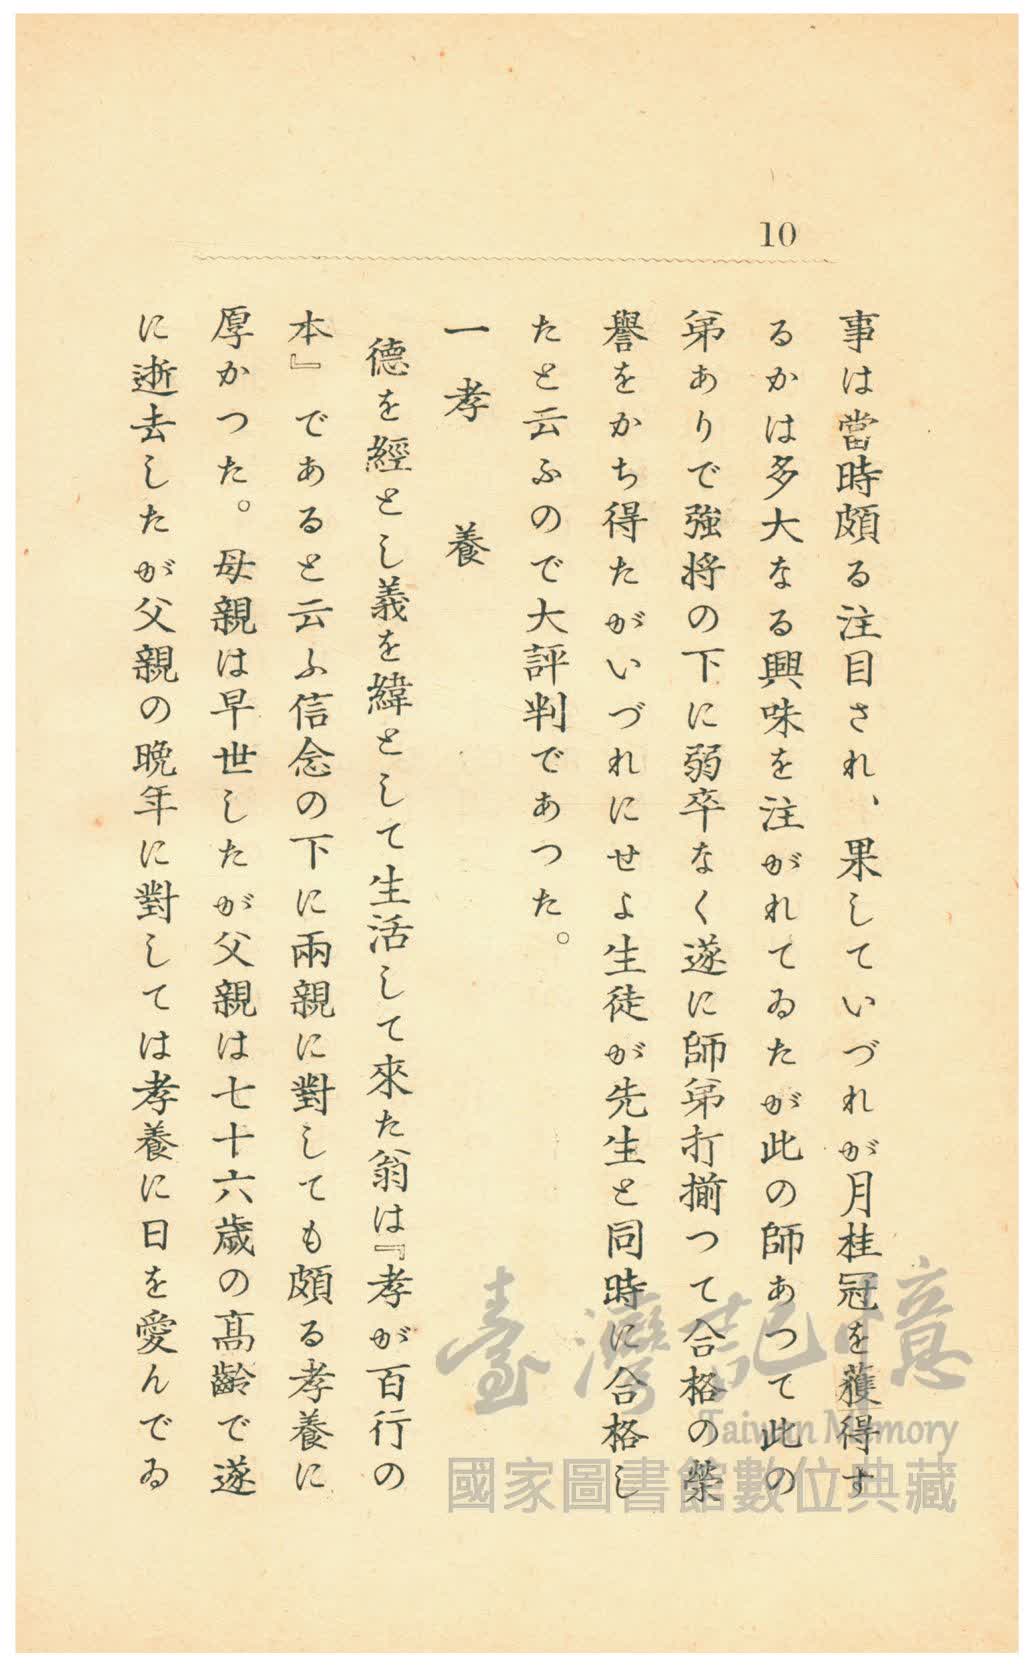 10
事は當時頗る注目され、果していづれが月桂冠を獲得す
るかは多大なる興味を注がれてゐたが此の師あつて此の
弟ありで強将の下に弱卒なく遂に師弟打揃つて合格の榮
譽をかち得たがいづれにせよ生徒が先生と同時に合格し
たと云ふので大評判であつた。
一 孝 養
德を經とし義を緯として生活して來た翁は『孝が百行の
本』であると云ふ信念の下に兩親に對しても頗る孝養に
厚かつた。母親は早世したが父親は七十六歳の髙齡で遂
に逝去したが父親の晩年に對しては孝養に日を愛んでゐ
臺灣記憶
Taiwan Memory
國家圖書館數位典藏